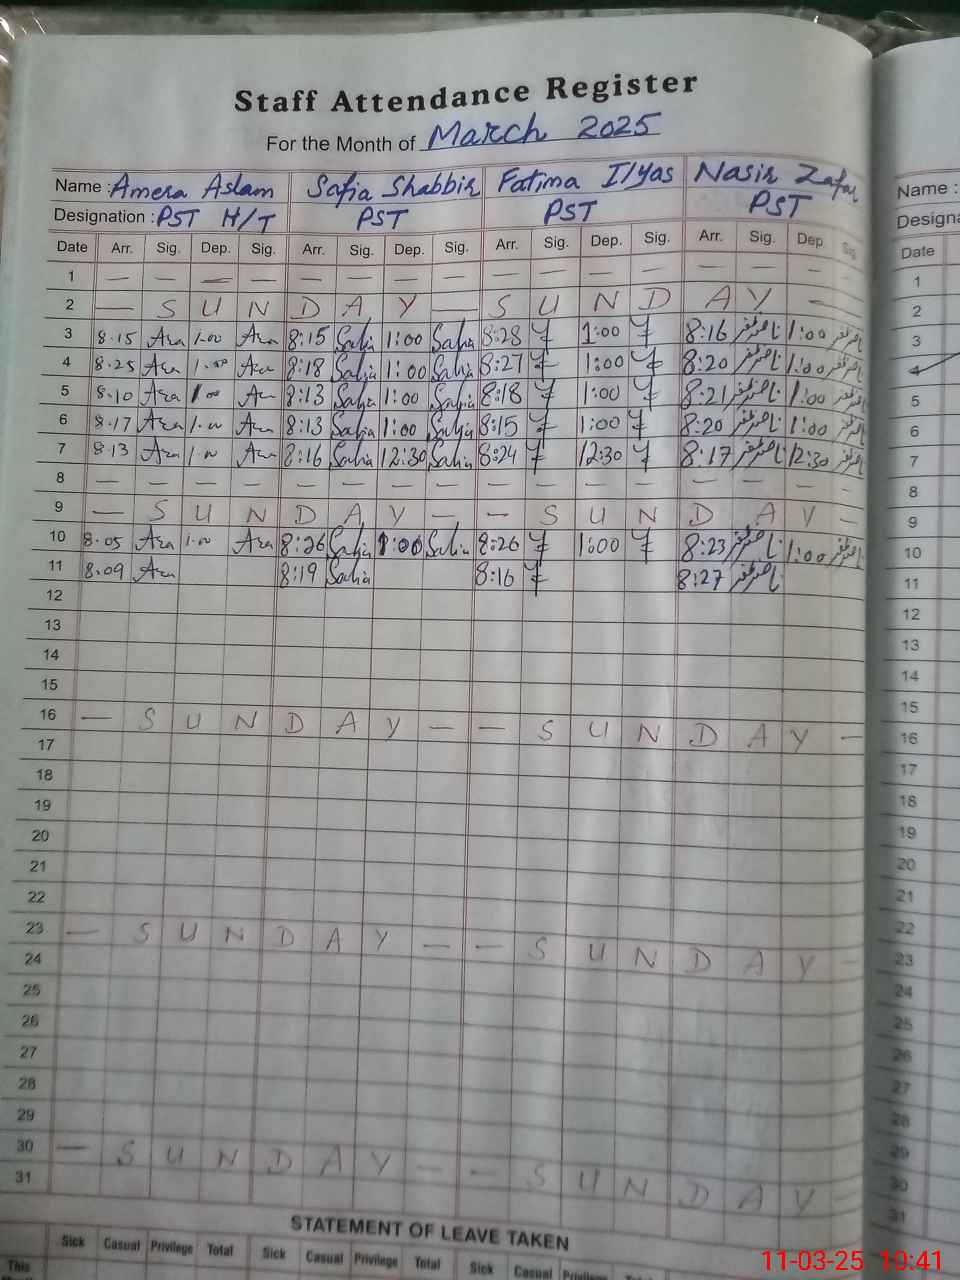 Staff Attendance Register
For the Month of March 2025
Name : Amera Aslam Safia Shabbir Fatima Ilyas Nasir Zafar
Designation : PST H/T PST PST PST
Date Arr. Sig. Dep. Sig. Arr. Sig. Dep. Sig. Arr. Sig. Dep. Sig. Arr. Sig. Dep. Sig.
1 — — — — — — — — — — — — — — — —
2 — S U N D A Y — S U N D A Y —
3 8.15 1.00 8:15 Safia 1:00 Safia 8:28 1:00 8:16 ناصر ظفر 1:00 ناصر ظفر
4 8.25 1.00 8:18 Safia 1:00 Safia 8:27 1:00 8:20 ناصر ظفر 1:00 ناصر ظفر
5 8.10 1.00 8:13 Safia 1:00 Safia 8:18 1:00 8:21 ناصر ظفر 1:00 ناصر ظفر
6 8.17 1.00 8:13 Safia 1:00 Safia 8:15 1:00 8:20 ناصر ظفر 1:00 ناصر ظفر
7 8.13 1.00 8:16 Safia 12:30 Safia 8:24 12:30 8:17 ناصر ظفر 12:30 ناصر ظفر
8 — — — — — — — — — — — — — — — —
9 — S U N D A Y — — S U N D A Y —
10 8.05 1.00 8:26 Safia 1:00 Safia 8:26 1:00 8:23 ناصر ظفر 1:00 ناصر ظفر
11 8.09 8:19 Safia 8:16 8:27 ناصر ظفر
12
13
14
15
16 — S U N D A Y — — S U N D A Y —
17
18
19
20
21
22
23 — S U N D A Y — — S U N D A Y —
24
25
26
27
28
29
30 — S U N D A Y — — S U N D A Y —
31
STATEMENT OF LEAVE TAKEN
Sick Casual Privilege Total Sick Casual Privilege Total Sick Casual Privilege
This
Name :
Designa
Date
1
2
3
4
5
6
7
8
9
10
11
12
13
14
15
16
17
18
19
20
21
22
23
24
25
26
27
28
29
30
31
11-03-25 10:41